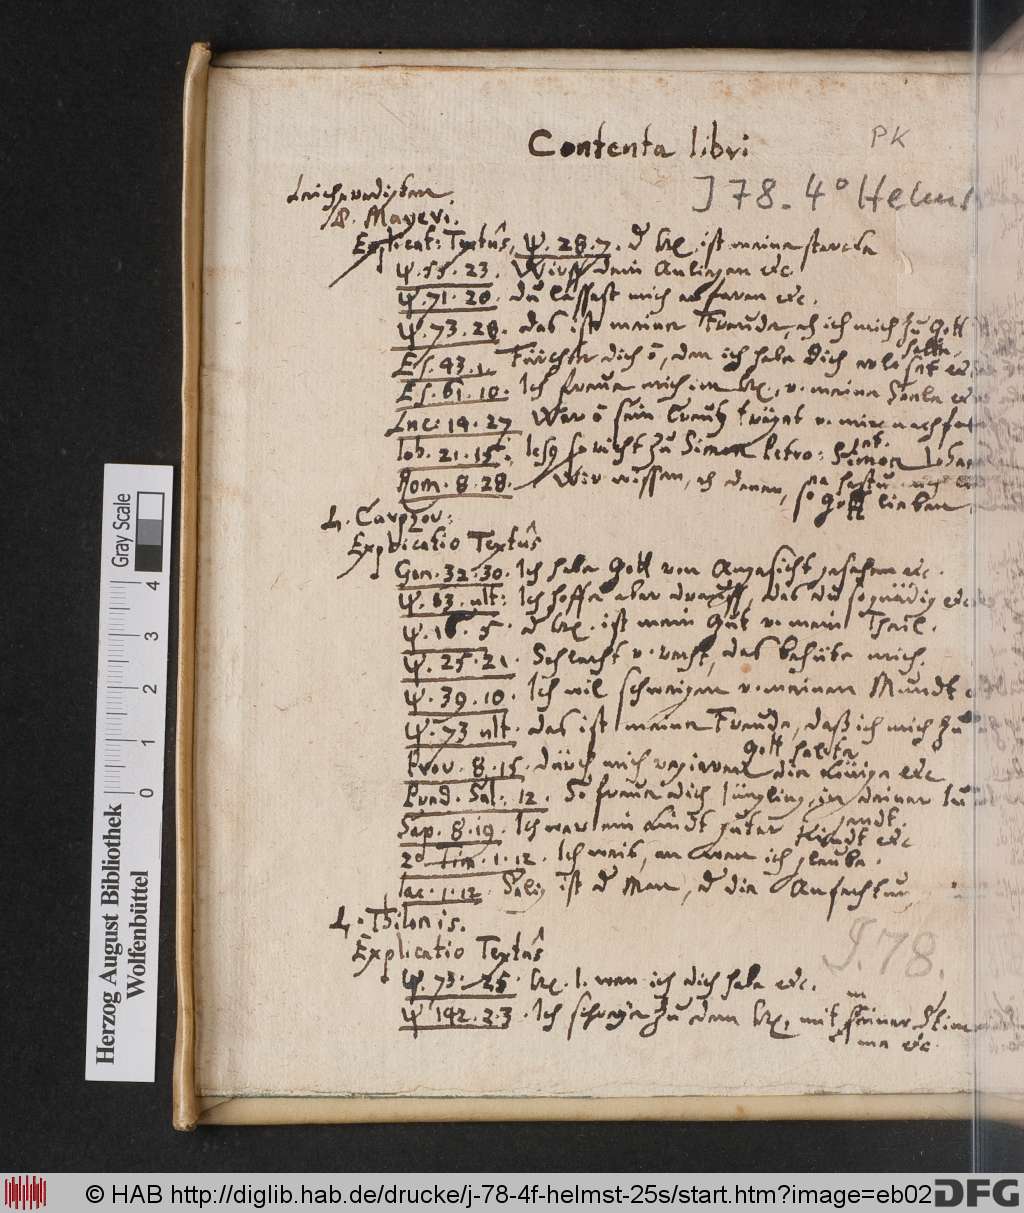 Contenta libri
PK
J 78. 4° Helmst
Leichpredigten
D. Mayeri.
Explicat: Textûs, Ψ. 28. 7. d hE. ist meine starcke
Ψ. 55. 23. Wirff dein Anliegen etc.
Ψ. 71. 20. du lässest mich erfaren etc.
Ψ. 73. 28. das ist meine Freude, dz ich mich zu Gott
halte.
Es. 43. 1. Fürchte dich ō, den ich habe dich erlöset etc
Es. 61. 10. Ich freue mich im hE. v. meine Seele etc
Luc. 14. 27 Wer ō sein Creutz trägt v. mir nachfol
Joh. 21. 15. Iesus spricht zu Simon Petro: Simon Johan
na hastu mich
Rom. 8. 28. Wir wissen, dz denen, so Gott lieben
L. Carpzov:
Explicatio Textûs
Gen. 32. 30. Ich habe Gott von Angesicht gesehen etc.
Ψ. 13. ult: Ich hoffe aber drauff, das du so gnädig etc
Ψ. 16. 5. d hE. ist mein Gut v. mein Theil.
Ψ. 25. 21. Schlecht v. recht, das behüte mich.
Ψ. 39. 10. Ich wil schweigen v. meinen Mundt
Ψ. 73 ult. das ist meine Freude, daß ich mich zu
Gott halte
Prov. 8. 15. durch mich regieren die Könige etc
Pred. Sal. 12. So freue dich Jüngling, in deiner Ju
gendt.
Sap. 8. 19. Ich war ein Kindt guter
Kindt etc
2d Tim. 1. 12. Ich weis, an wen ich gleube.
Iac. 1. 12. Selig ist d Man, d die Anfechtun
L. Thilonis.
Explicatio Textûs
J. 78.
Ψ. 73. 25. hE. l. wen ich dich habe etc.
Ψ 142. 2. 3. Ich schreye zu dem hE, mit meiner Stim
me etc
Gray Scale
4
3
2
1
0
Herzog August Bibliothek
Wolfenbüttel
© HAB http://diglib.hab.de/drucke/j-78-4f-helmst-25s/start.htm?image=eb02
DFG